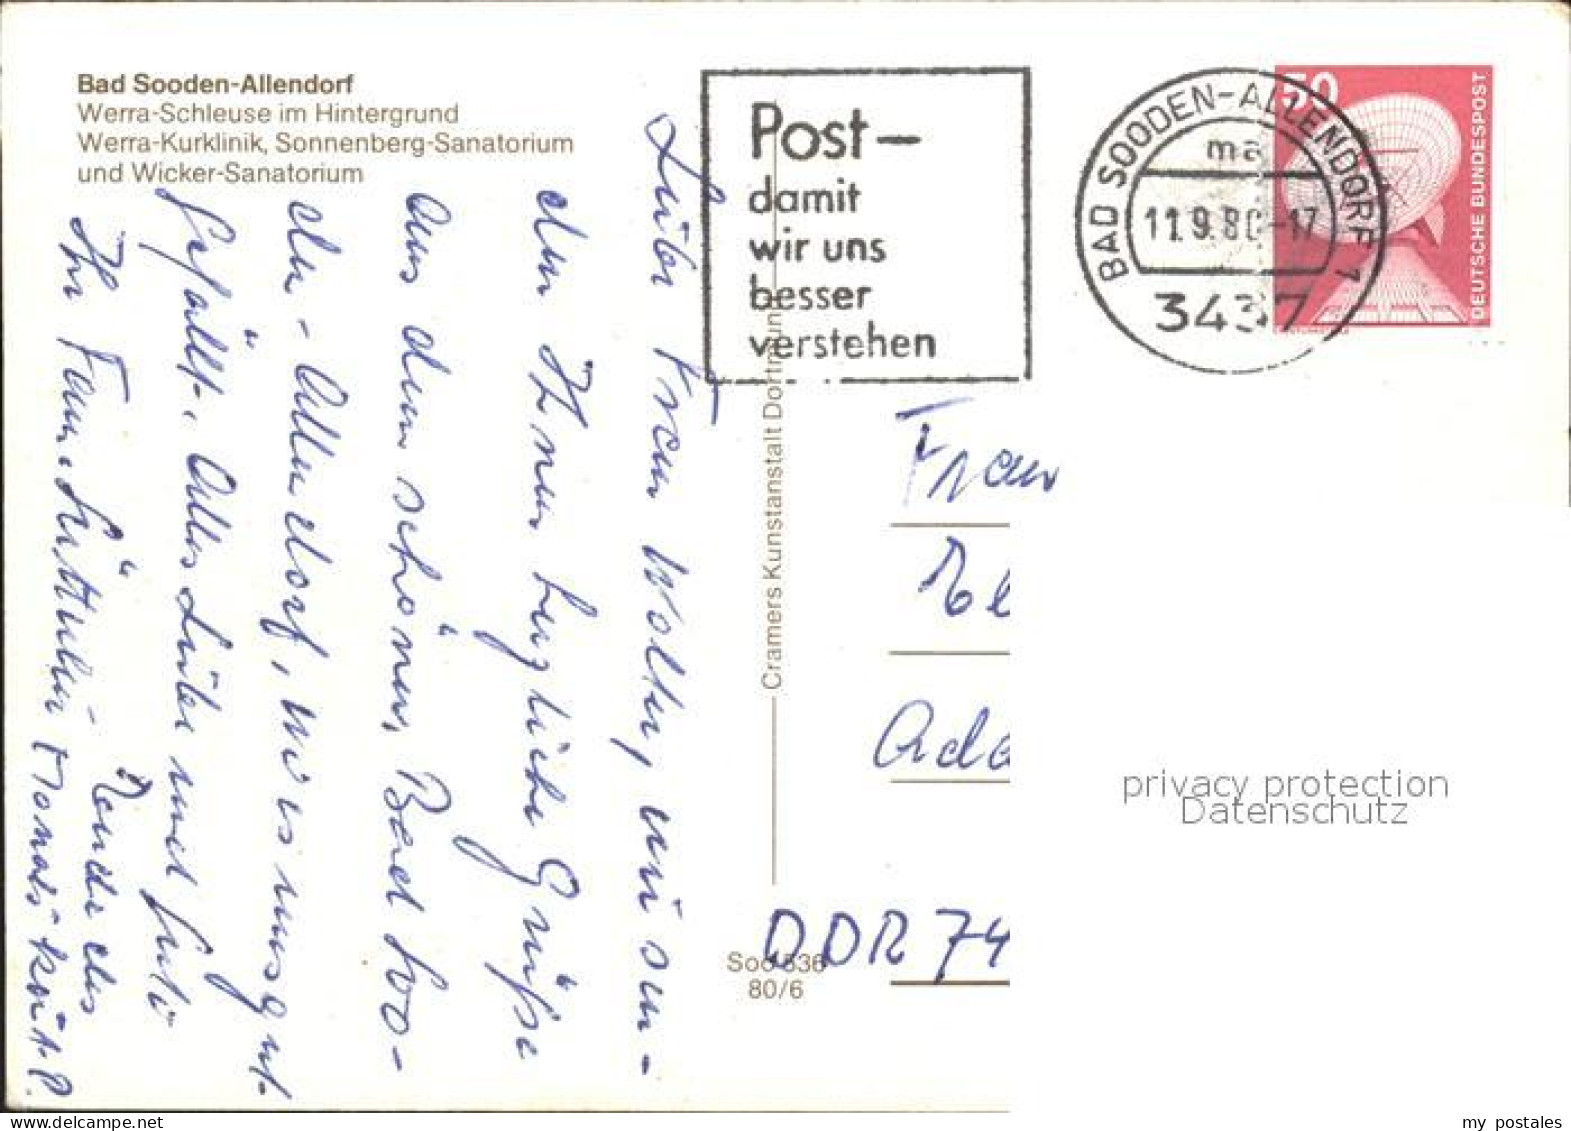 Bad Sooden-Allendorf
Werra-Schleuse im Hintergrund
Werra-Kurklinik, Sonnenberg-Sanatorium
und Wicker-Sanatorium
Post-
damit
wir uns
besser
verstehen
BAD SOODEN-ALLENDORF 1
ma
11.9.80-17
3437
50
DEUTSCHE BUNDESPOST
Liebe Frau Wolter, wir sen-
den Ihnen herzliche Grüße
aus dem schönen Bad Soo-
den-Allendorf, wo es uns gut
gefällt. Alles Liebe und Gute
Ihre Fam.
Cramers Kunstanstalt Dortmund
Soo 336
80/6
Frau
Ade
DDR 74
privacy protection
Datenschutz
my postales